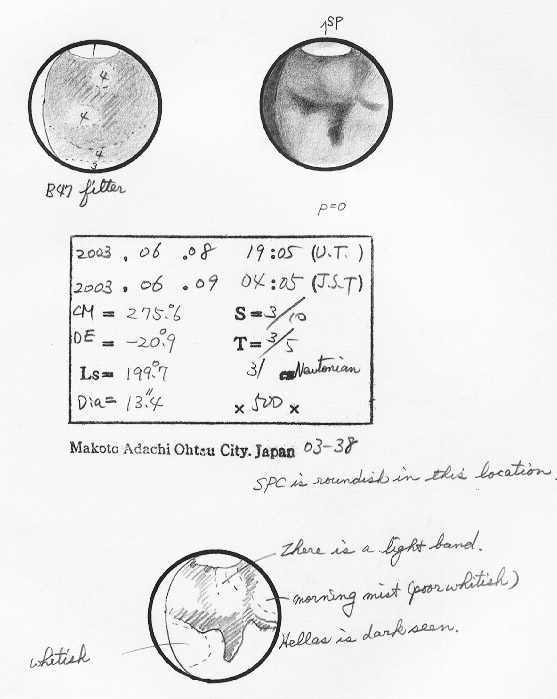 ↑SP
4
4
4
3
B47 filter
p=0
2003 . 06 . 08 19:05 (U.T.)
2003 . 06 . 09 04:05 (J.S.T)
CM = 275.°6 S=3/10
DE = -20.°9 T=3/5
Ls= 199.°7 31 cm Newtonian
Dia= 13.″4 × 500 ×
Makoto Adachi Ohtsu City. Japan 03-38
SPC is roundish in this location.
There is a light band.
morning mist (poor whitish)
Hellas is dark seen.
whitish